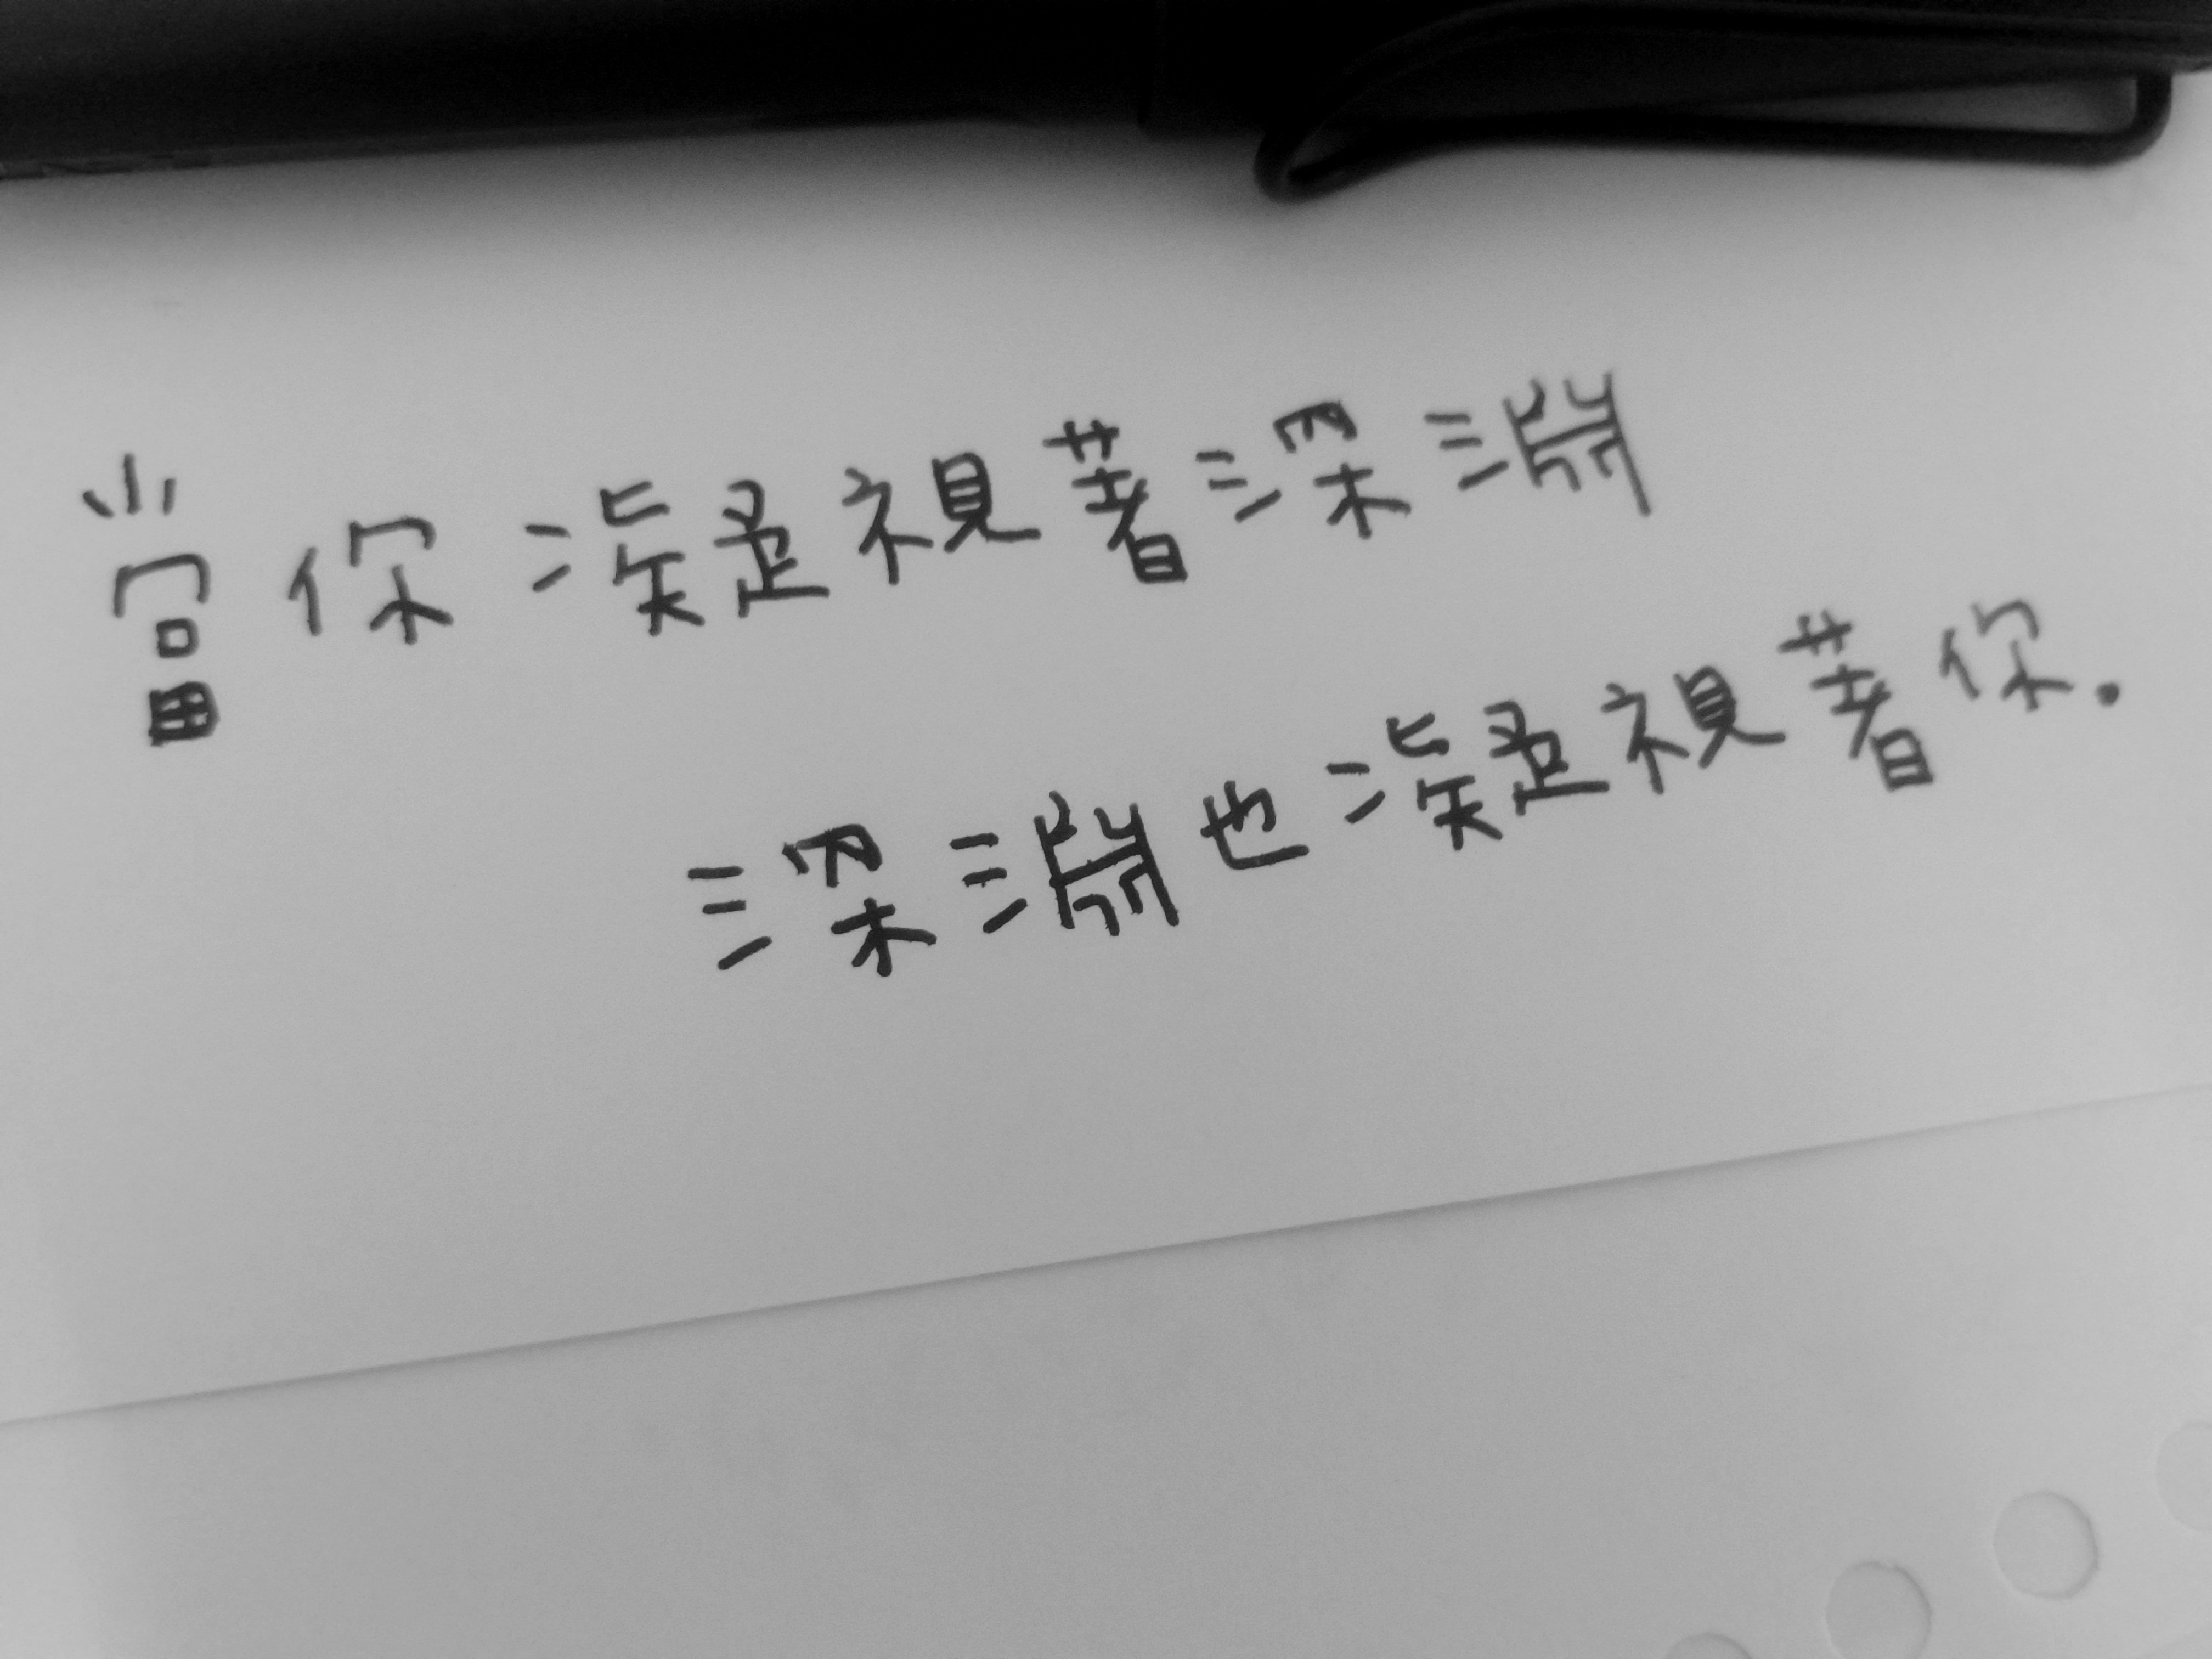 當你凝視著深淵
深淵也凝視著你.